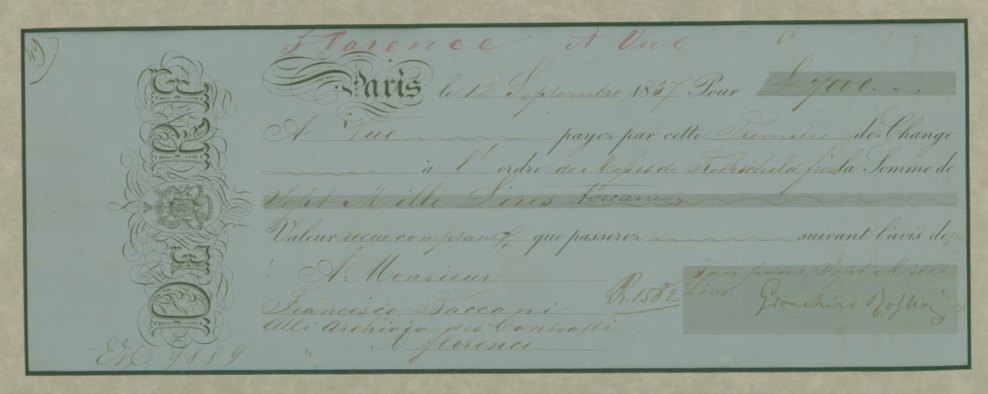 49
Florence A Vue
Paris le 12 Septembre 1857 Pour £ 7000
A Vue payez par cette Première de Change
à l'ordre de de Rothschild frères la Somme de
Sept Mille Lires toscanes
Valeur reçue comptant, que passerez suivant l'avis de
A Monsieur Bon pour Sept Mille
Francisco Baccani R 1582 Lires
Alli Archivio dei Contratti
A florence
9889